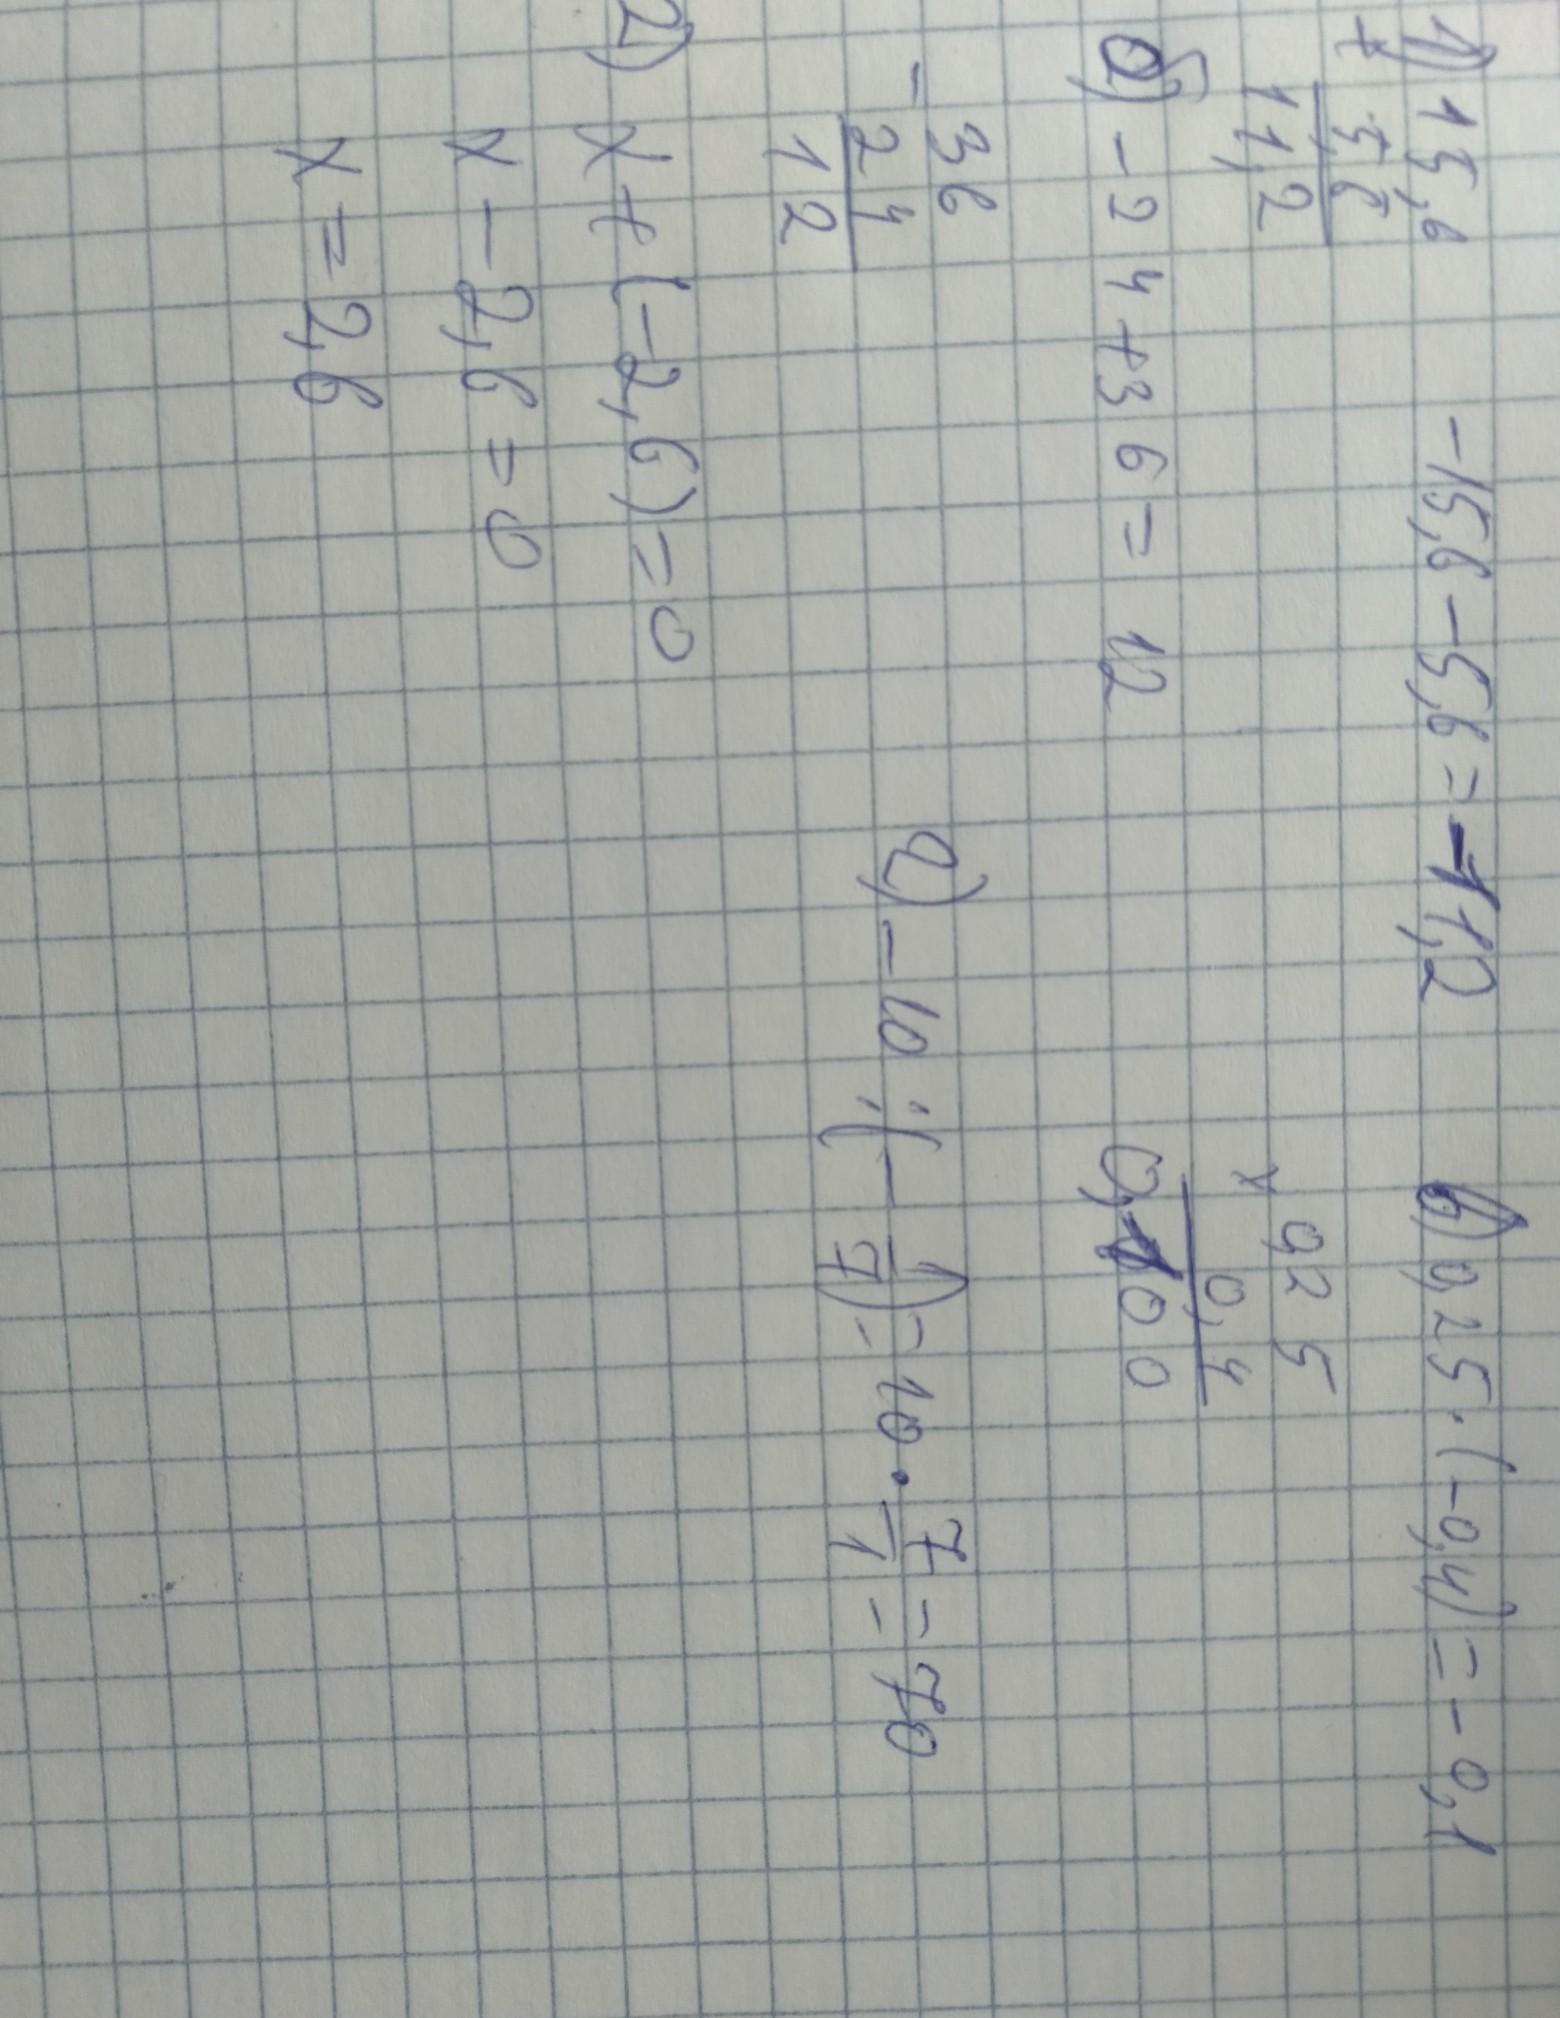 1) 15,6 -15,6-5,6=-11,2
+ 5,6
11,2
б) -24+36= 12
- 36
24
12
в) 0,25·(-0,4)=-0,1
x 0,25
0,4
0,100
г) -10:(-1/7)=10·7/1=70
2) x+(-2,6)=0
x-2,6=0
x=2,6